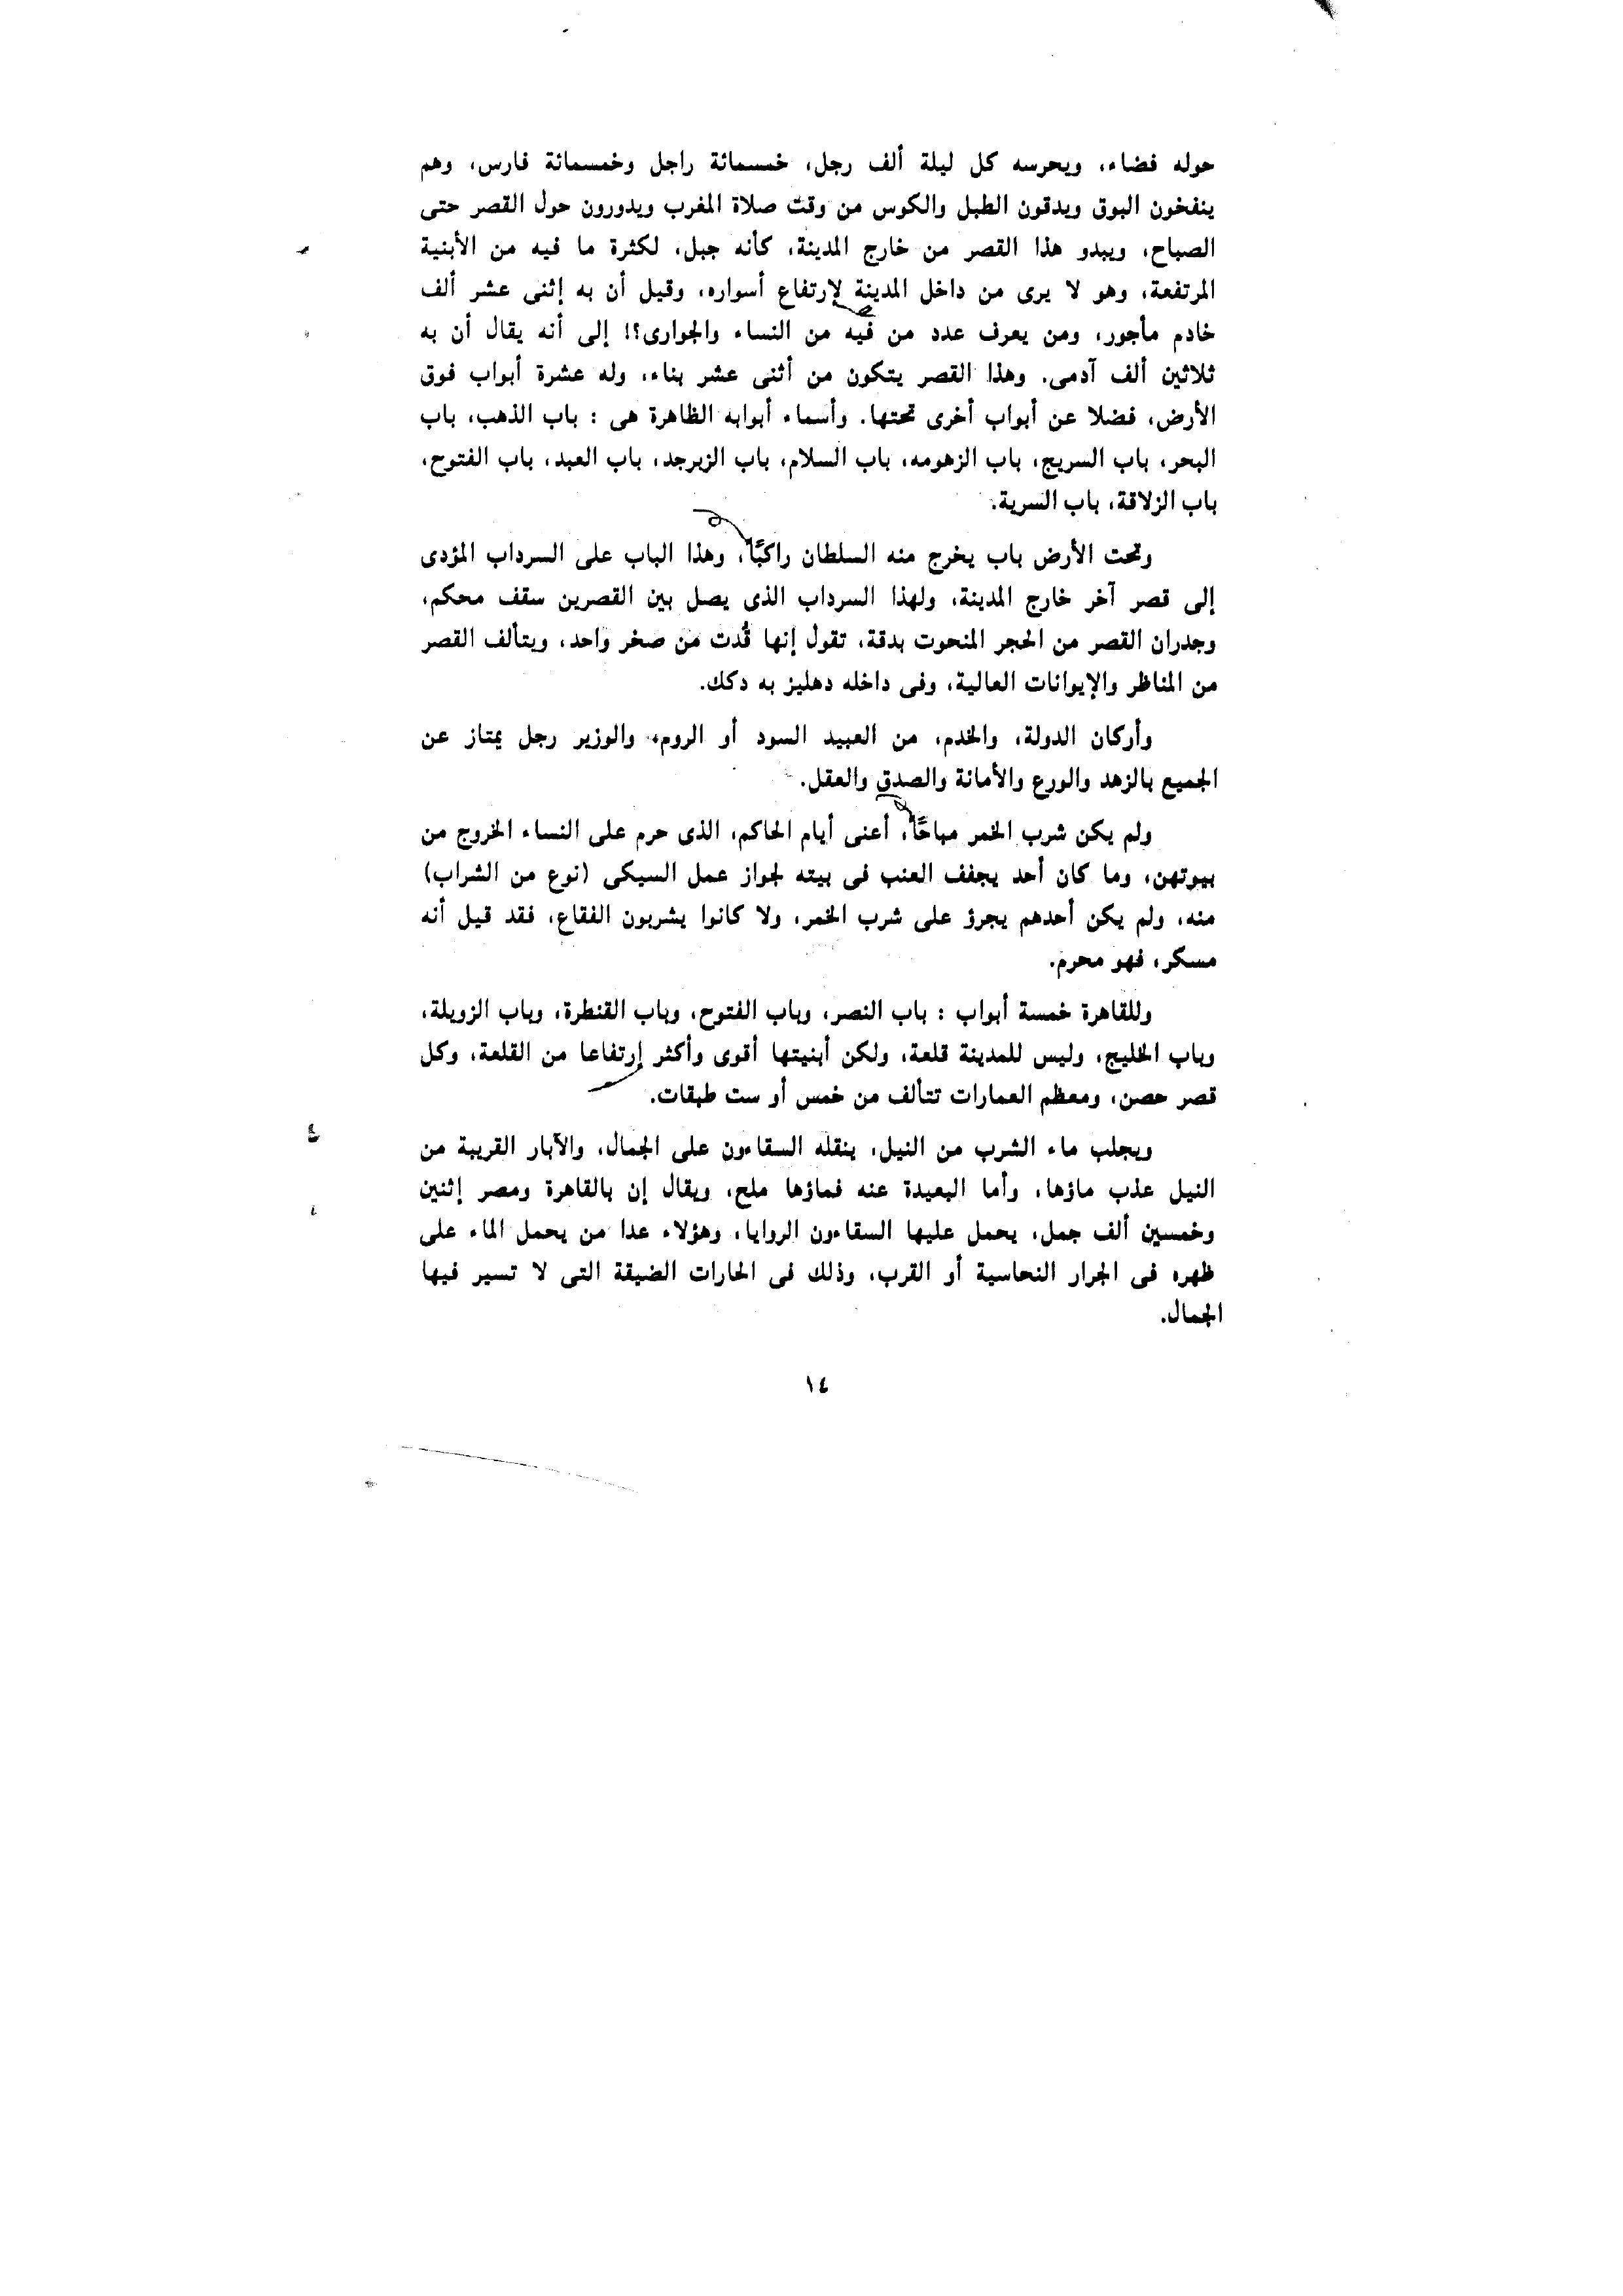 حوله فضاء، ويحرسه كل ليلة ألف رجل، خمسمائة راجل وخمسمائة فارس، وهم
ينفخون البوق ويدقون الطبل والكوس من وقت صلاة المغرب ويدورون حول القصر حتى
الصباح، ويبدو هذا القصر من خارج المدينة، كأنه جبل، لكثرة ما فيه من الأبنية
المرتفعة، وهو لا يرى من داخل المدينة لإرتفاع أسواره، وقيل أن به إثنى عشر ألف
خادم مأجور، ومن يعرف عدد من فيه من النساء والجوارى؟! إلى أنه يقال أن به
ثلاثين ألف آدمى. وهذا القصر يتكون من أثنى عشر بناء، وله عشرة أبواب فوق
الأرض، فضلا عن أبواب أخرى تحتها. وأسماء أبوابه الظاهرة هى : باب الذهب، باب
البحر، باب السريج، باب الزهومه، باب السلام، باب الزبرجد، باب العبد، باب الفتوح،
باب الزلاقة، باب السرية.
وتحت الأرض باب يخرج منه السلطان راكبًا، وهذا الباب على السرداب المؤدى
إلى قصر آخر خارج المدينة، ولهذا السرداب الذى يصل بين القصرين سقف محكم،
وجدران القصر من الحجر المنحوت بدقة، تقول إنها قُدت من صخر واحد، ويتألف القصر
من المناظر والإيوانات العالية، وفى داخله دهليز به دكك.
وأركان الدولة، والخدم، من العبيد السود أو الروم، والوزير رجل يمتاز عن
الجميع بالزهد والورع والأمانة والصدق والعقل.
ولم يكن شرب الخمر مباحًا، أعنى أيام الحاكم، الذى حرم على النساء الخروج من
بيوتهن، وما كان أحد يجفف العنب فى بيته لجواز عمل السيكى (نوع من الشراب)
منه، ولم يكن أحدهم يجرؤ على شرب الخمر، ولا كانوا يشربون الفقاع، فقد قيل أنه
مسكر، فهو محرم.
وللقاهرة خمسة أبواب : باب النصر، وباب الفتوح، وباب القنطرة، وباب الزويلة،
وباب الخليج، وليس للمدينة قلعة، ولكن أبنيتها أقوى وأكثر إرتفاعا من القلعة، وكل
قصر حصن، ومعظم العمارات تتألف من خمس أو ست طبقات.
ويجلب ماء الشرب من النيل، ينقله السقاءون على الجمال، والآبار القريبة من
النيل عذب ماؤها، وأما البعيدة عنه فماؤها ملح، ويقال إن بالقاهرة ومصر إثنين
وخمسين ألف جمل، يحمل عليها السقاءون الروايا، وهؤلاء عدا من يحمل الماء على
ظهره فى الجرار النحاسية أو القرب، وذلك فى الحارات الضيقة التى لا تسير فيها
الجمال.
١٤